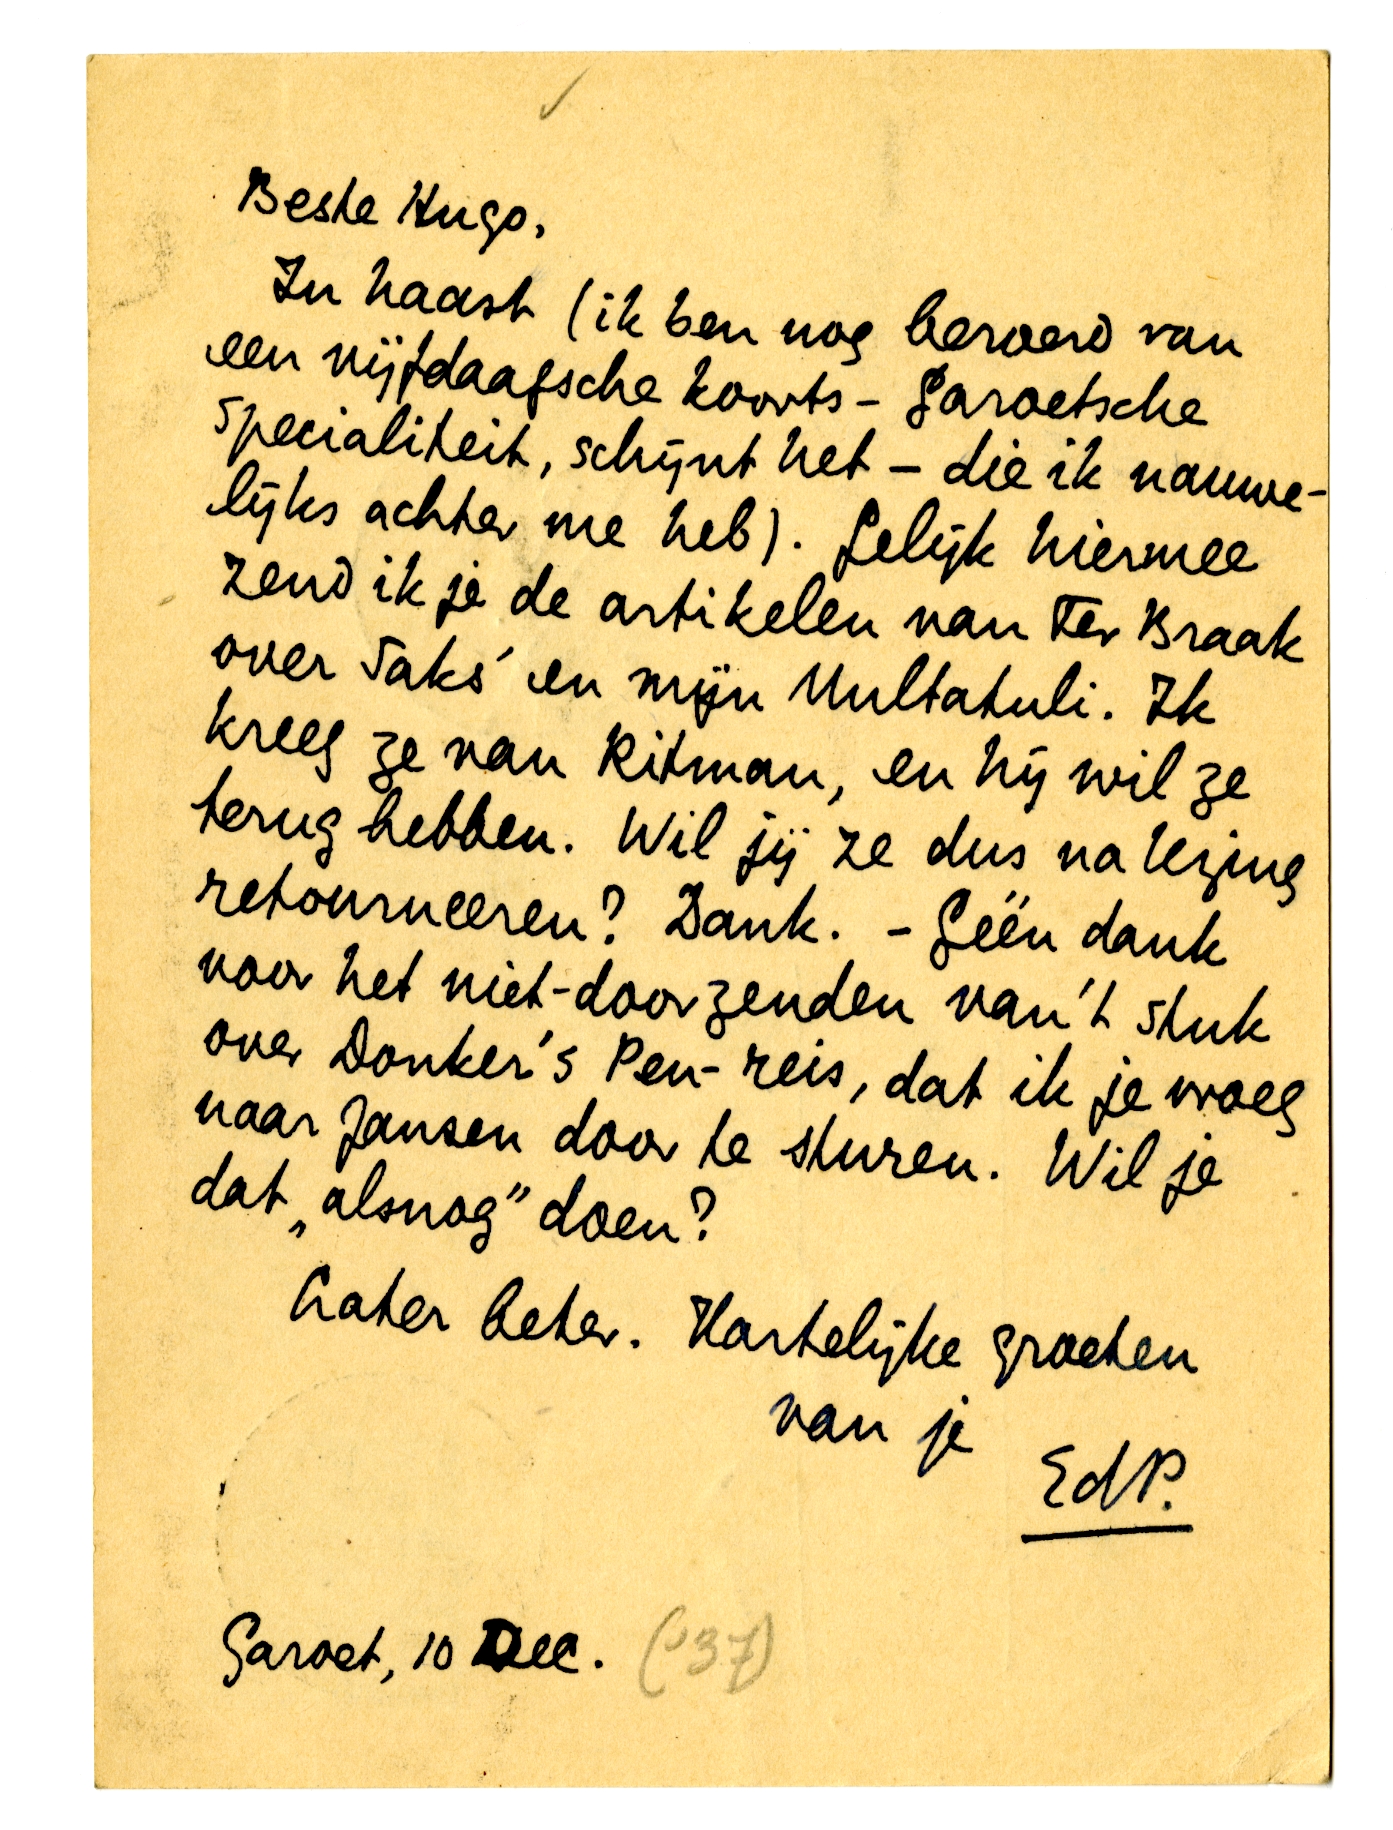 Beste Hugo,
In haast (ik ben nog beroerd van
een vijfdaagsche koorts – Garoetsche
specialiteit, schijnt het – die ik nauwe-
lijks achter me heb). Gelijk hiermee
zend ik je de artikelen van Ter Braak
over Saks' en mijn Multatuli. Ik
kreeg ze van Ritman, en hij wil ze
terug hebben. Wil jij ze dus na lezing
retourneeren? Dank. – Géén dank
voor het niet-doorzenden van 't stuk
over Donker's Pen-reis, dat ik je vroeg
naar Jansen door te sturen. Wil je
dat „alsnog” doen?
Later beter. Hartelijke groeten
van je
EdP.
Garoet, 10 Dec. ('37)